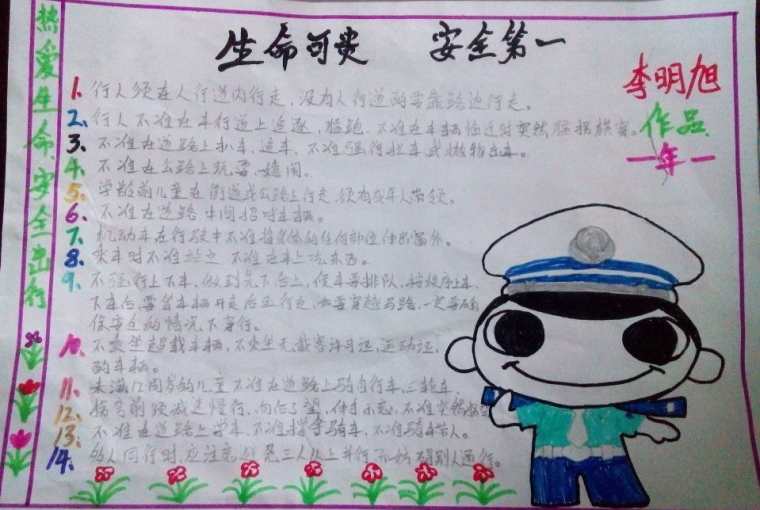 热爱生命 安全出行
生命可贵 安全第一
李明旭
作品
一年一
1、行人须在人行道内行走，没有人行道的要靠路边行走。
2、行人不准在车行道上追逐，猛跑，不准在车辆临近时突然猛拐横穿。
3、不准在道路上扒车、追车、不准强行拦车或抛物击车。
4、不准在公路上玩耍、嬉闹。
5、学龄前儿童在街道或公路上行走，须有成年人带领。
6、不准在道路中间招呼车辆。
7、机动车在行驶中不准将身体的任何部位伸出窗外。
8、乘车时不准站立 不准在车上吃东西。
9、不强行上下车，做到先下后上，候车要排队，按秩序上车，
下车后要等车辆开走后再行走，如要穿越马路，一定要在确
保安全的情况下穿行。
10、不乘坐超载车辆，不乘坐无载客许可证，运动证，
的车辆。
11、未满12周岁的儿童不准在道路上骑自行车、三轮车，
12、拐弯前须减速慢行，向后了望，伸手示意，不准突然
13、不准在道路上学车，不准撑伞骑车，不准骑车带人。
14、多人同行时应注意 三人以上并行 别人通行。